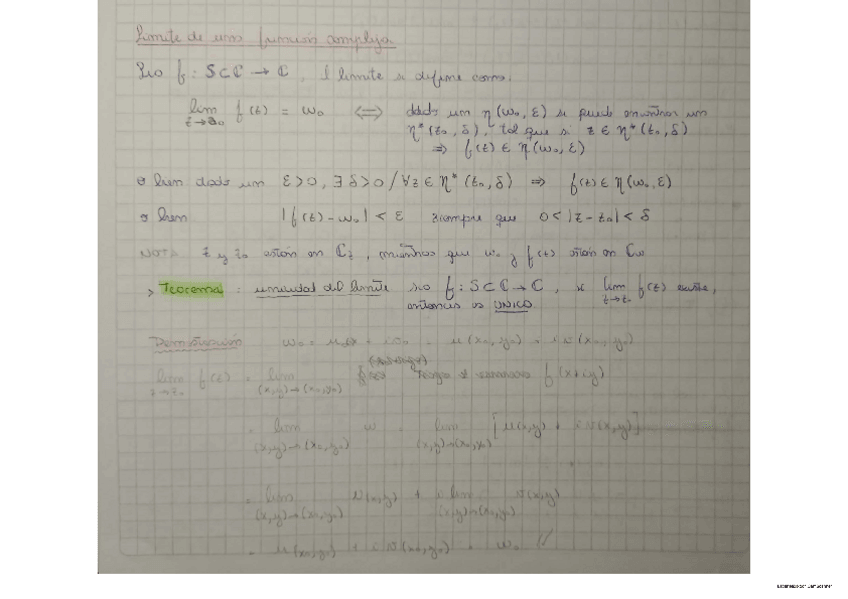 Limite de una función compleja.
Sea f: S⊂ℂ → ℂ, el limite se define como:
lim z→z₀ f(z) = w₀ ⟺ dado un η(w₀, ε) se puede encontrar un
η*(z₀, δ), tal que si z ∈ η*(z₀, δ)
⇒ f(z) ∈ η(w₀, ε)
o bien dado un ε>0, ∃ δ>0 / ∀z ∈ η*(z₀, δ) ⇒ f(z) ∈ η(w₀, ε)
o bien |f(z) - w₀| < ε siempre que 0 < |z - z₀| < δ
NOTA z y z₀ están en ℂz, mientras que w₀ y f(z) están en ℂw
> Teorema: unicidad del limite sea f: S⊂ℂ→ℂ, si lim z→z₀ f(z) existe,
entonces es ÚNICO.
Demostración w₀ = + i = u(x₀, y₀) + i v(x₀, y₀)
lim z→z₀ f(z) = lim (x,y)→(x₀,y₀) f(x+iy)
= lim (x,y)→(x₀,y₀) w = lim (x,y)→(x₀,y₀) [u(x,y) + i v(x,y)]
= lim (x,y)→(x₀,y₀) u(x,y) + i lim (x,y)→(x₀,y₀) v(x,y)
= u(x₀,y₀) + i v(x₀,y₀) = w₀ //